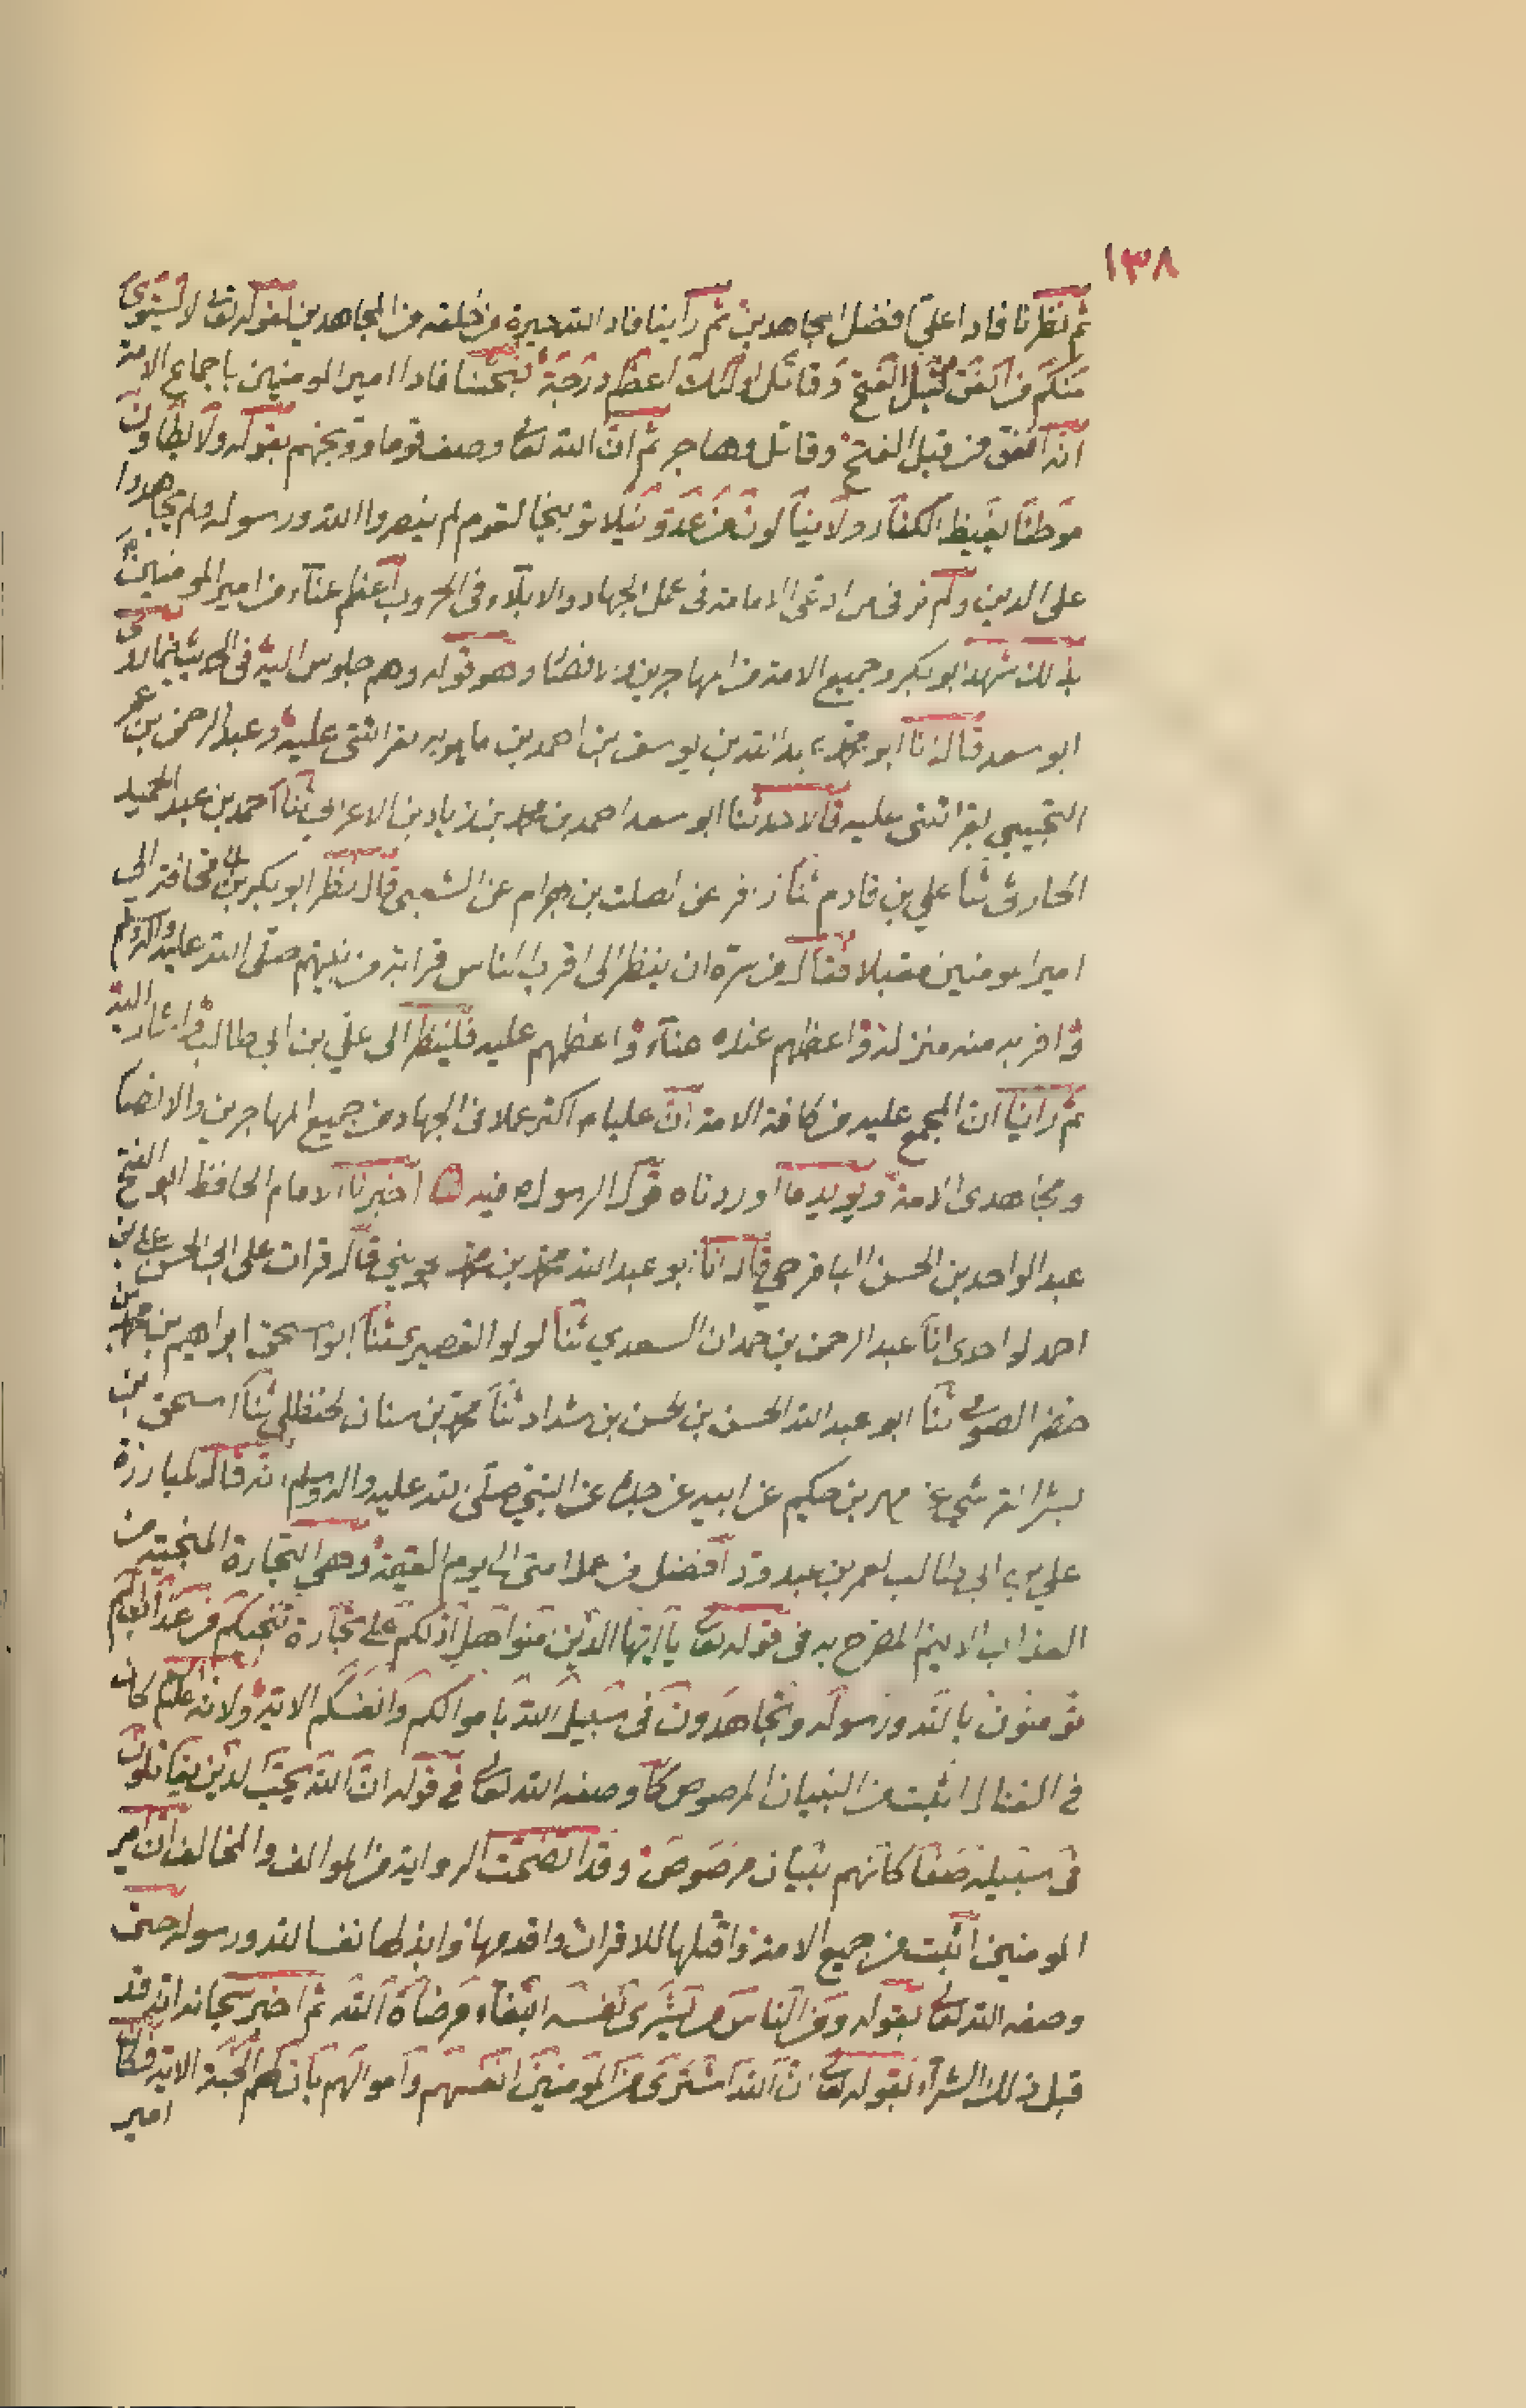 ١٣٨
ثم نظرنا فاذا علي افضل المجاهدين ثم رأينا فاذا الله خيرة من خلقه من المجاهدين لقوله تعالى لا يستوى
منكم من انفق من قبل الفتح وقاتل اولئك اعظم درجة فبحثنا فاذا امير المومنين باجماع الامة
انه انفق من قبل الفتح وقاتل وهاجر ثم ان الله تعالى وصف قوما ووبخهم بقوله ولا يطأون
موطئا يغيظ الكفار ولا ينالون من عدو نيلا توبيخا لقوم لم ينصروا الله ورسوله ولم يجاهدوا
على الدين ولم نر فى من ادعى الامامة فى عمل الجهاد والابلاء فى الحروب اعظم عناء من امير المومنين
بذلك شهد ابو بكر وجميع الامة من المهاجرين والانصار وهو قوله وهم جلوس اليه فى الحديث فيما
ابو سعد قال انا ابو محمد عبد الله بن يوسف بن احمد بن مامويه بقراءتى عليه وعبد الرحمن بن عمر
التجيبي بقراءتى عليه قالا حدثنا ابو سعد احمد بن محمد بن زياد بن الاعرابي ثنا احمد بن عبد الحميد
الحارثى ثنا علي بن قادم ثنا زفر عن الصلت بن بهرام عن الشعبى قال نظر ابو بكر بن ابى قحافة الي
امير المومنين مقبلا فقال من سره ان ينظر الى اقرب الناس قرابة من نبيهم صلى الله عليه واله وسلم
واقربه منه منزلة واعظمهم عنده عناء واعظمهم عليه فلينظر الى علي بن ابي طالب واشار اليه
ثم راينا ان المجمع عليه من كافة الامة ان عليا م اكثر عملا فى الجهاد من جميع المهاجرين والانصار
ومجاهدى الامة ويويد ما اوردناه قول الرسول ص فيه ه اخبرنا الامام الحافظ ابو الفتح
عبد الواحد بن الحسن الباقرحي قال انا ابو عبد الله محمد بن محمد جويني قال قرات على ابى الحسن علي بن
احمد لواحدى انا عبد الرحمن بن حمدان السعدي ثنا لولو القصيرى ثنا ابو اسحق ابراهيم بن محمد بن
خضر الصوفى ثنا ابو عبد الله الحسن بن الحسن بن شداد ثنا محمد بن سنان الحنظلي ثنا اسحق بن
بشر القرشي عن بهز بن حكيم عن ابيه عن جده عن النبي صلى الله عليه واله وسلم انه قال لمبارزة
علي بن ابي طالب لعمرو بن عبد ود افضل من عمل امتى الى يوم القيمة وهى التجارة المنجية من
العذاب الاليم المصرح به فى قوله تعالى يا ايها الذين امنوا هل ادلكم على تجارة تنجيكم من عذاب اليم
تومنون بالله ورسوله وتجاهدون فى سبيل الله باموالكم وانفسكم الاية ولانه عليه السلم كان
في القتال اثبت من البنيان المرصوص كما وصفه الله تعالى في قوله ان الله يحب الذين يقاتلون
فى سبيله صفا كانهم بنيان مرصوص وقد اتضحت الرواية من الموالف والمخالف ان امير
المومنين اثبت من جميع الامة واقتلها للاقران واقدمها وابذلها نفسا لله ورسوله حتى
وصفه الله تعالى بقوله ومن الناس من يشرى نفسه ابتغاء مرضاة الله ثم اخبر سبحانه انه قد
قبل ذلك الشراء بقوله تعالى ان الله اشترى من المومنين انفسهم واموالهم بان لهم الجنة الاية فكان
امير